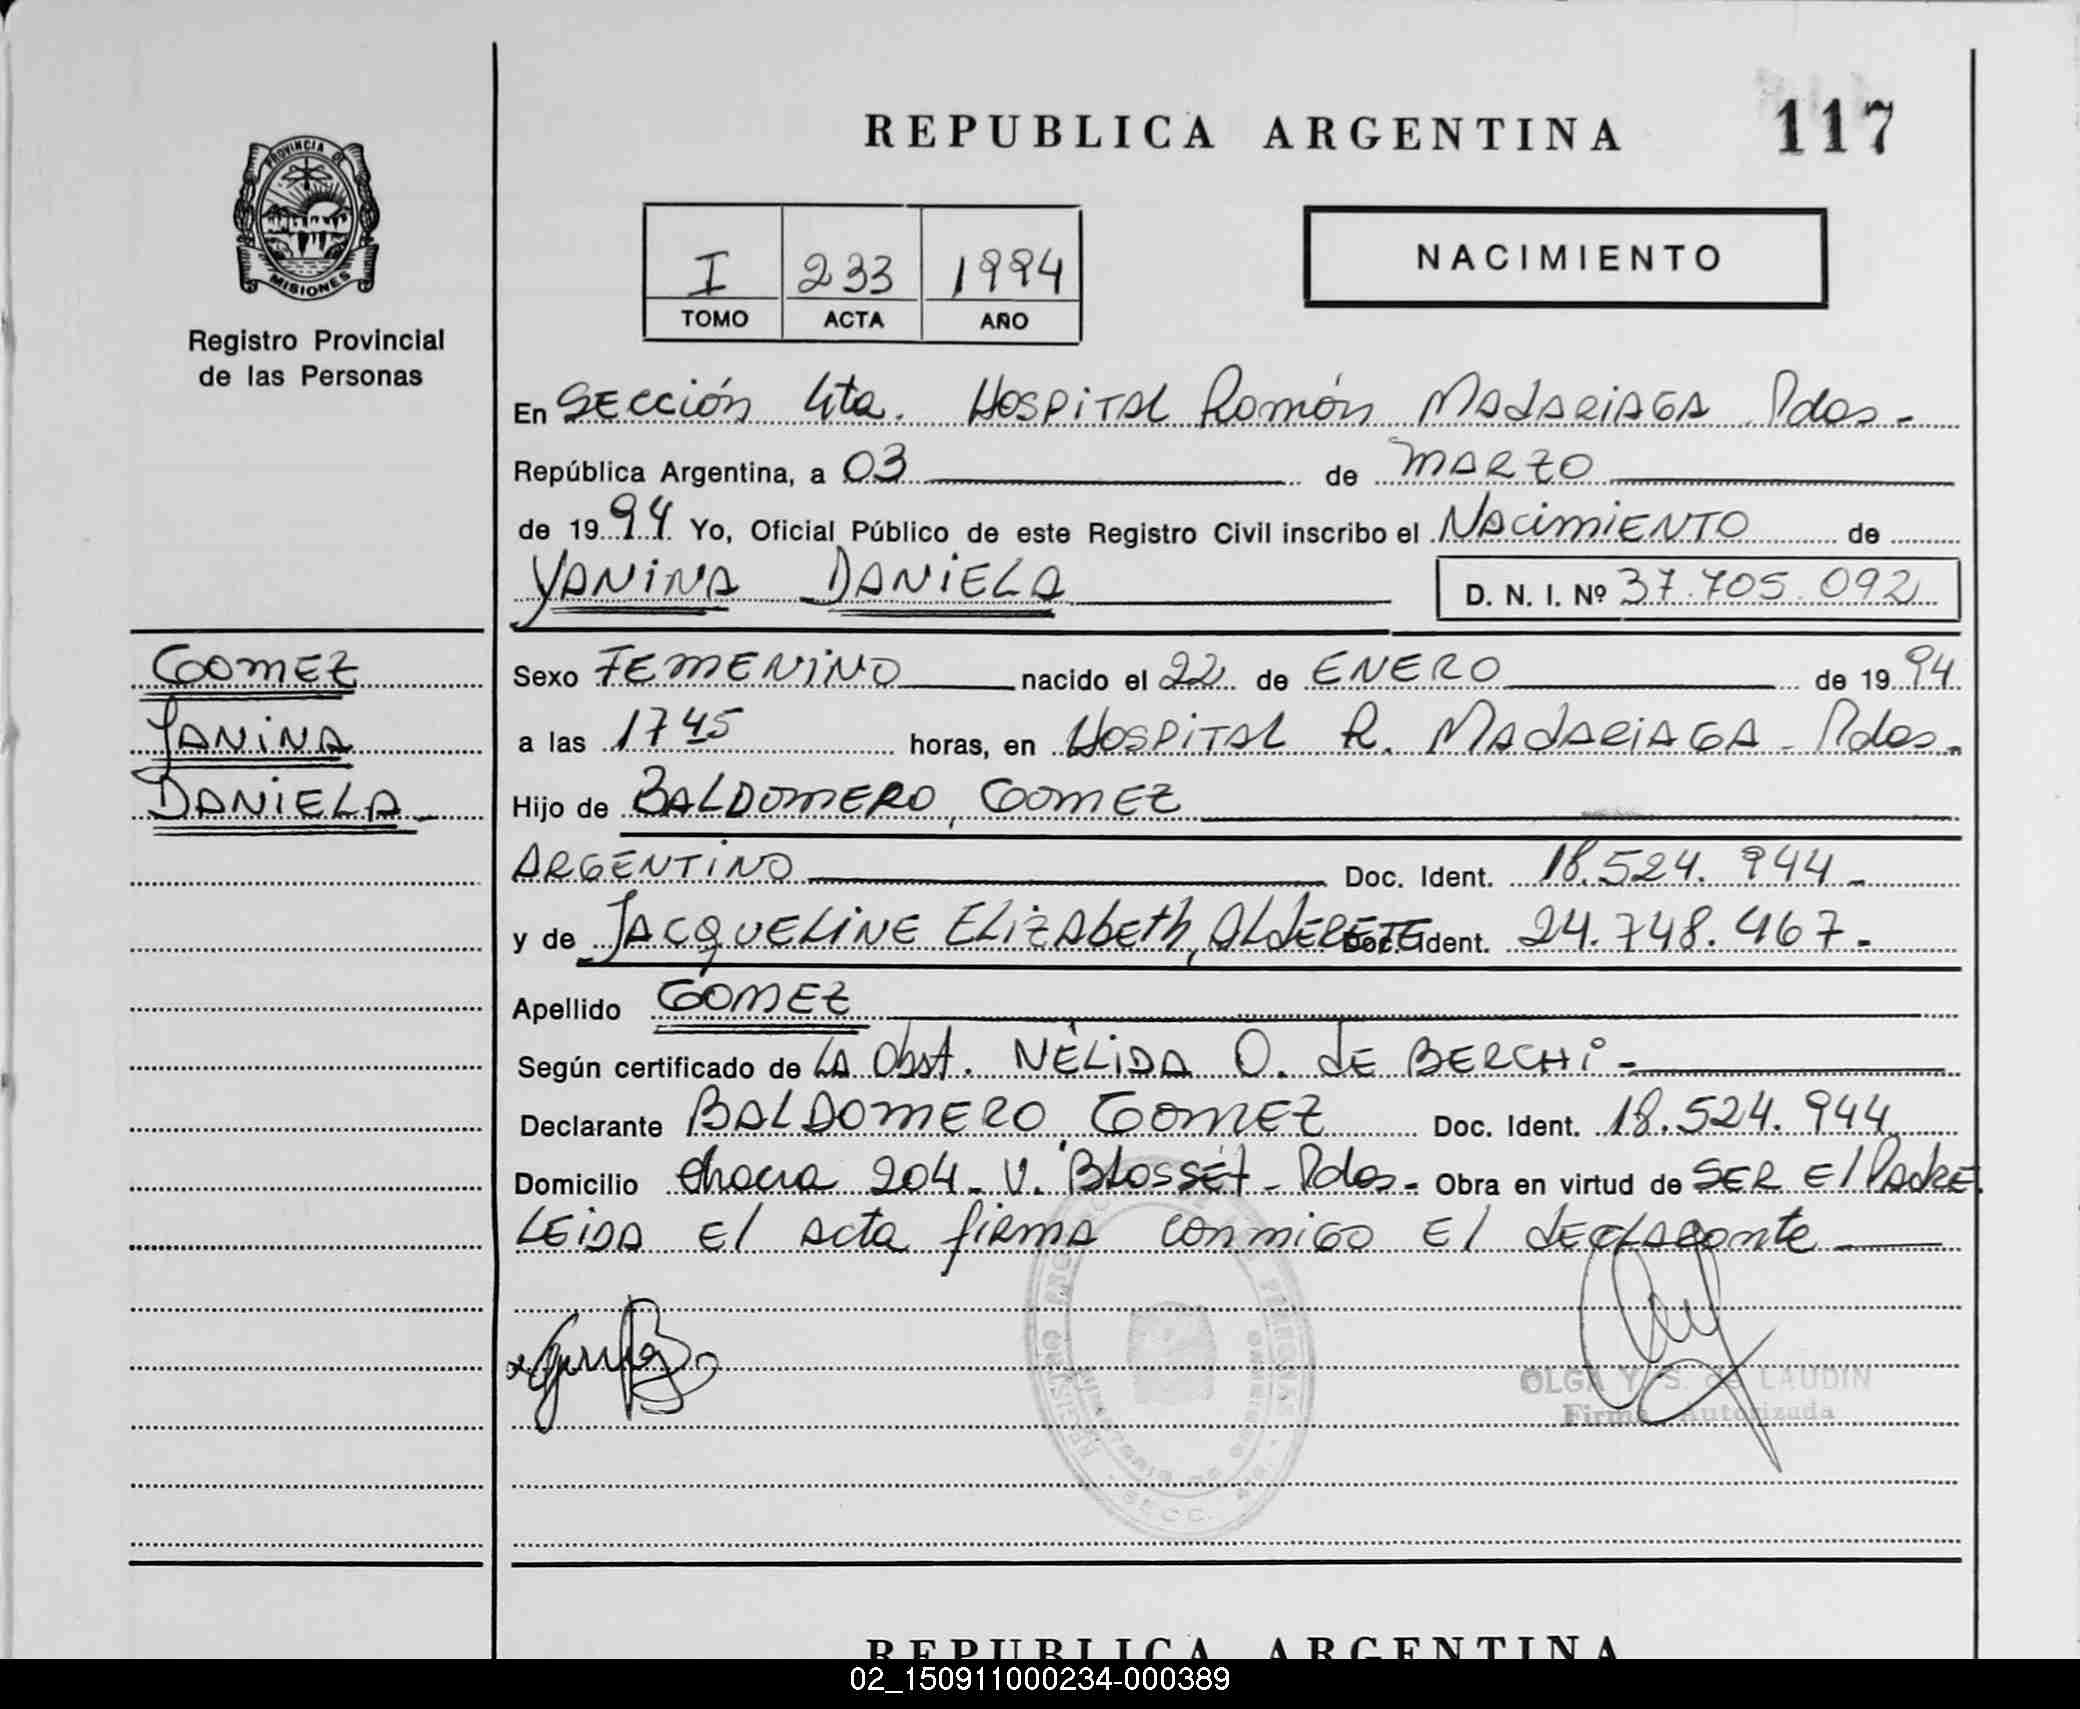 REPUBLICA ARGENTINA
117
PROVINCIA DE
MISIONES
Registro Provincial
de las Personas
I 233 1994
TOMO ACTA AÑO
NACIMIENTO
En SECCIÓN 4ta. HOSPITAL Ramón MADARIAGA Pdas-
República Argentina, a 03 de MARZO
de 1994 Yo, Oficial Público de este Registro Civil inscribo el NACIMIENTO de
YANINA DANIELA D. N. I. Nº 37.705.092
GOMEZ
YANINA
DANIELA
Sexo FEMENINO nacido el 22 de ENERO de 1994
a las 1745 horas, en HOSPITAL R. MADARIAGA - Pdas.
Hijo de BALDOMERO, GOMEZ
ARGENTINO Doc. Ident. 18.524.944-
y de JACQUELINE ELIZAbeth, ALDERETE Doc. Ident. 24.748.467-
Apellido GOMEZ
Según certificado de LA Obst. NÉLIDA O. dE BERCHI-
Declarante BALDOMERO, GOMEZ Doc. Ident. 18.524.944
Domicilio chacra 204- V. BLOSSET- Pdas- Obra en virtud de SER El PADRE.
LEIDA El Acta fiRMA conmiGO El dECLARante
OLGA Y. S. de LAUDIN
Firma Autorizada
REPUBLICA ARGENTINA
02_150911000234-000389